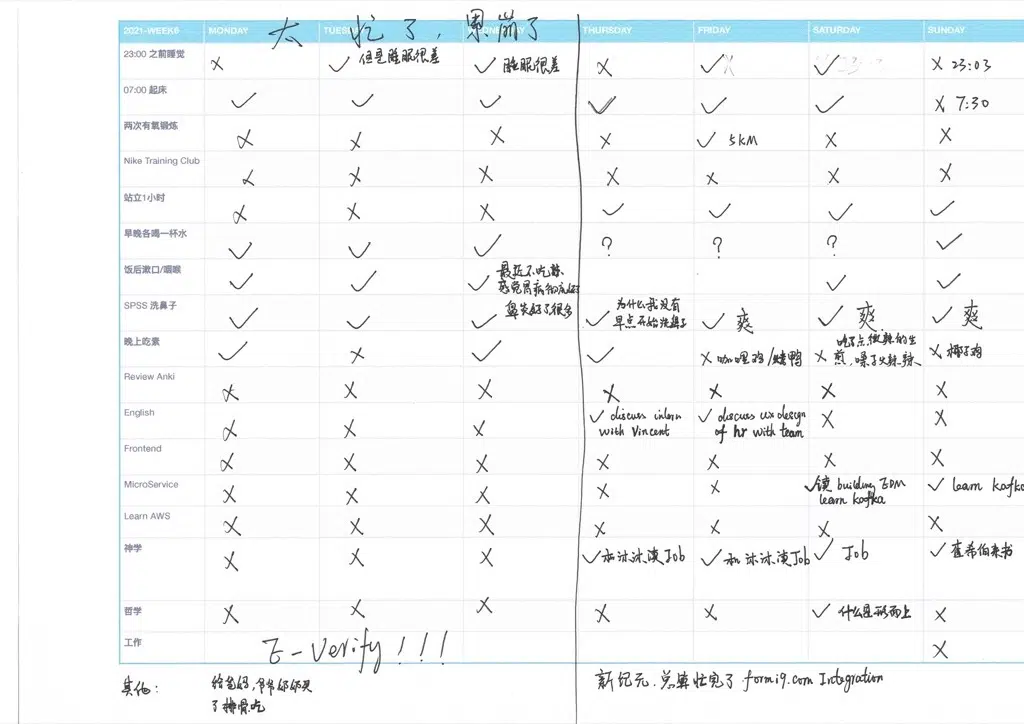 太忙了,累崩了
2021-WEEK6 MONDAY TUESDAY WEDNESDAY THURSDAY FRIDAY SATURDAY SUNDAY
23:00 之前睡觉 × ✓ 但是睡眠很差 ✓ 睡眠很差 × ✓ ✓ × 23:03
07:00 起床 ✓ ✓ ✓ ✓ ✓ ✓ × 7:30
两次有氧锻炼 × × × × ✓ 5KM × ×
Nike Training Club × × × × × × ×
站立1小时 × × × ✓ ✓ ✓ ✓
早晚各喝一杯水 ✓ ✓ ✓ ? ? ? ✓
饭后漱口/咽喉 ✓ ✓ ✓ 最近不吃辣,
感觉胃病彻底好
✓ ✓
SPSS 洗鼻子 ✓ ✓ ✓ 鼻炎好了很多 ✓ 为什么我没有
早点开始洗鼻子
✓ 爽 ✓ 爽 ✓ 爽
晚上吃素 ✓ × ✓ ✓ × 咖喱鸡/烤鸭 × 吃了点微辣的生
煎,嗓子火辣辣
× 椰子鸡
Review Anki × × × × × × ×
English × × × ✓ discuss intern
with Vincent
✓ discuss ux design
of hr with team
× ×
Frontend × × × × × × ×
MicroService × × × × × ✓ 读 building EDM
learn kafka
✓ learn kafka
Learn AWS × × × × × × ×
神学 × × × ✓ 和沐沐读Job ✓ 和沐沐读Job ✓ Job ✓ 查希伯来书
哲学 × × × × × ✓ 什么是形而上 ×
工作 E-Verify!!! ×
其他: 给爸妈,爷爷奶奶买
了排骨吃
新纪元.总算忙完了 formi9.com Integration